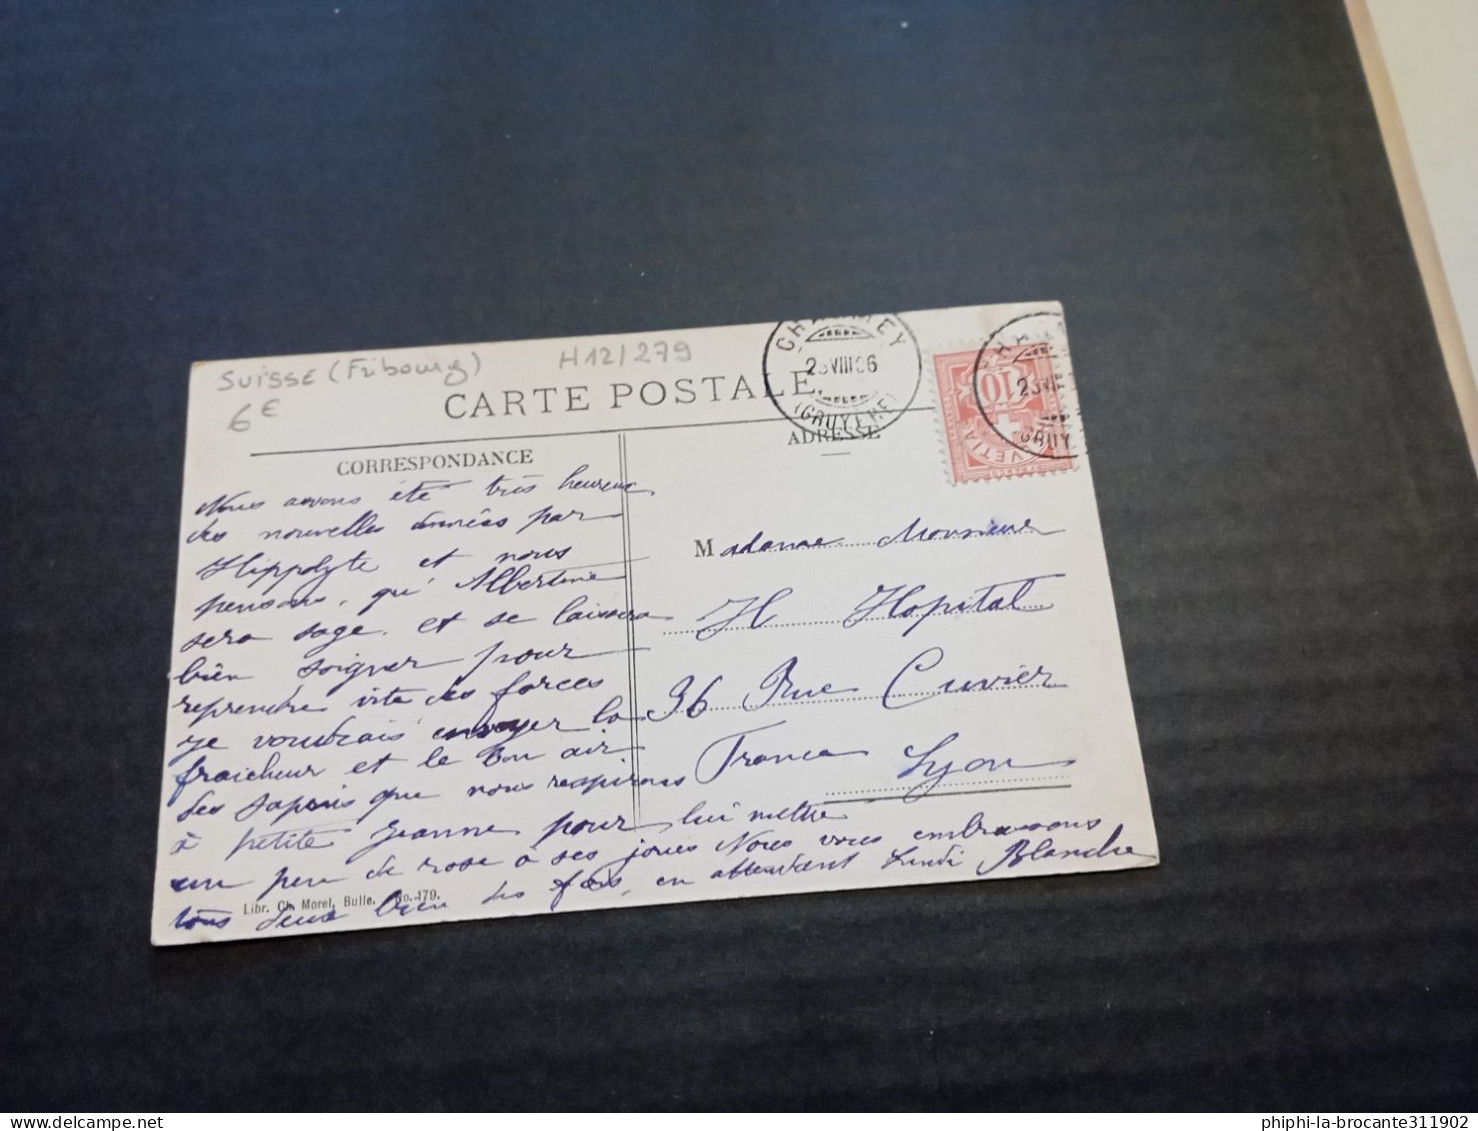 SUISSE (Fribourg)
H12/279
6€
CARTE POSTALE
CHARMEY
23 VIII 06
(GRUYÈRE)
CHARM
23 VIII
GRUY
10
HELVETIA
CORRESPONDANCE
ADRESSE
Nous avons été très heureux
des nouvelles données par
Hippolyte et nous
pensons, qu' Albertine
sera sage, et se laissera
bien soigner pour
reprendre vite des forces
je voudrais envoyer la
fraicheur et le bon air
des sapins que nous respirons
à petite Jeanne pour lui mettre
un peu de rose à ses joues Nous vous embrassons
tous deux bien des fois, en attendant Lundi Blanche
Madame Monsieur
H Hopital
36 Rue Cuvier
France Lyon
Libr. Ch. Morel, Bulle. No. 179.
phiphi-la-brocante311902